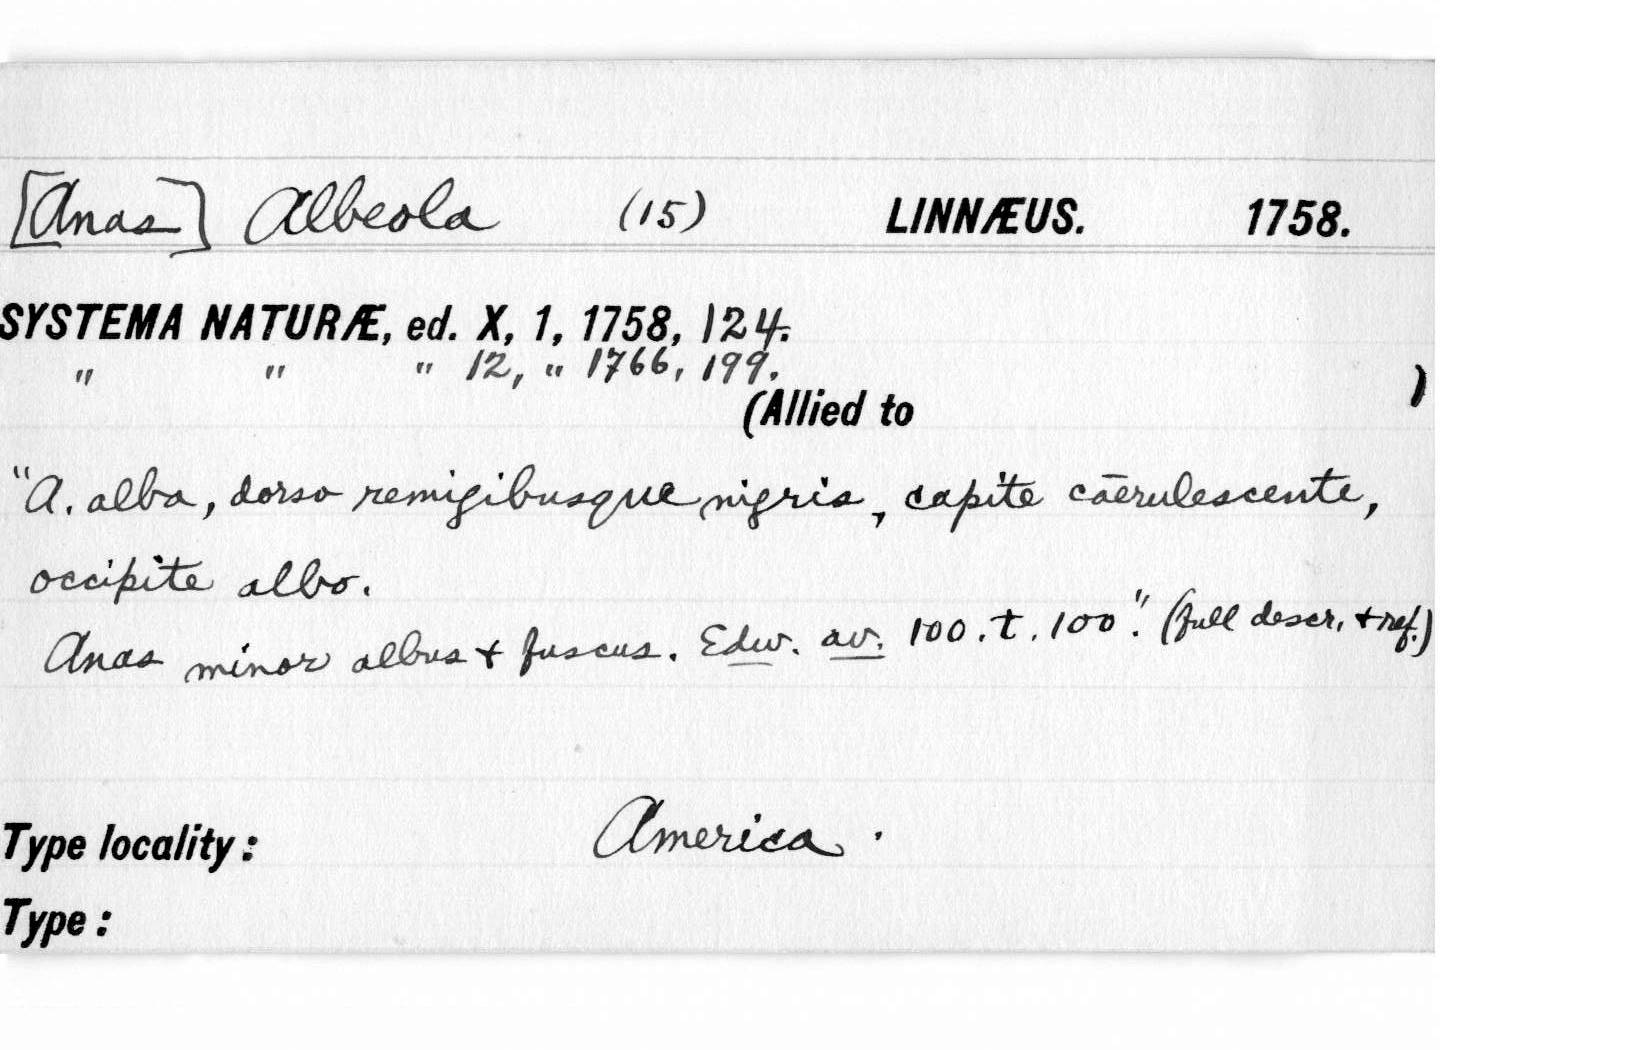 [Anas] Albeola (15) LINNÆUS. 1758.
SYSTEMA NATURÆ, ed. X, 1, 1758, 124.
" " " 12, " 1766, 199.
(Allied to )
"A. alba, dorso remigibusque nigris, capite cāerulescente,
occipite albo.
Anas minor albus & fuscus. Edw. av. 100. t. 100". (full descr. & ref.)
Type locality: America.
Type: